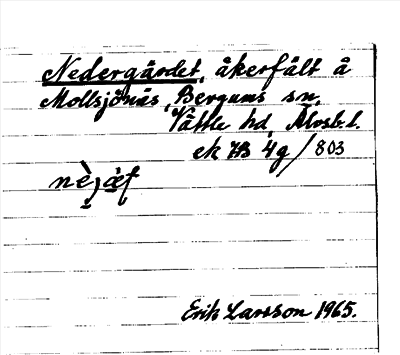 Nedergärdet, åkerfält å
Mollsjönäs, Bergums sn,
Vättle hd, Älvsb. l.
ek HB 4g/803
Erik Larsson 1965.